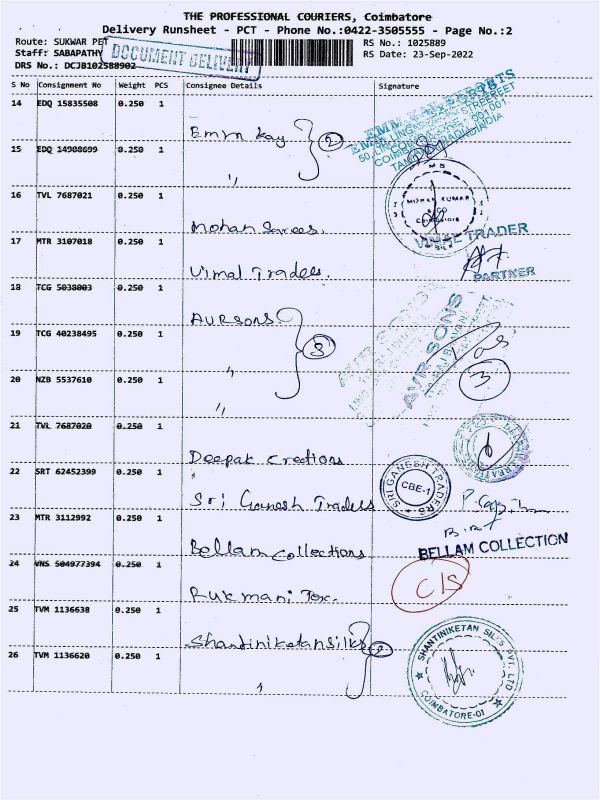 THE PROFESSIONAL COURIERS, Coimbatore
Delivery Runsheet - PCT - Phone No.:0422-3505555 - Page No.:2
Route: SUKWAR PET
RS No.: 1025889
Staff: SABAPATHY
DOCUMENT DELIVERY
RS Date: 23-Sep-2022
DRS No.: DCJB102588902
S No Consignment No Weight PCS Consignee Details Signature
14 EDQ 15835508 0.250 1
Emm Kay 2
15 EDQ 14908699 0.250 1
"
16 TVL 7687021 0.250 1
MOHAN KUMAR
& CO
Mohan Sarees.
17 MTR 3107018 0.250 1
VIMAL TRADER
Vimal Traders.
PARTNER
18 TCG 5038003 0.250 1
AVR Sons 3
AVR SONS
19 TCG 40238495 0.250 1
"
20 NZB 5537610 0.250 1
3
"
21 TVL 7687020 0.250 1
Deepak Creations
22 SRT 62452399 0.250 1
SRI GANESH TRADERS
CBE-1
Sri Ganesh Traders
23 MTR 3112992 0.250 1
Bellam Collections
BELLAM COLLECTION
24 VNS 504977394 0.250 1
C/S
Rukmani Tex.
25 TVM 1136638 0.250 1
Shantiniketan Silks 2
SHANTINIKETAN SILKS PVT. LTD
COIMBATORE-01
26 TVM 1136620 0.250 1
"